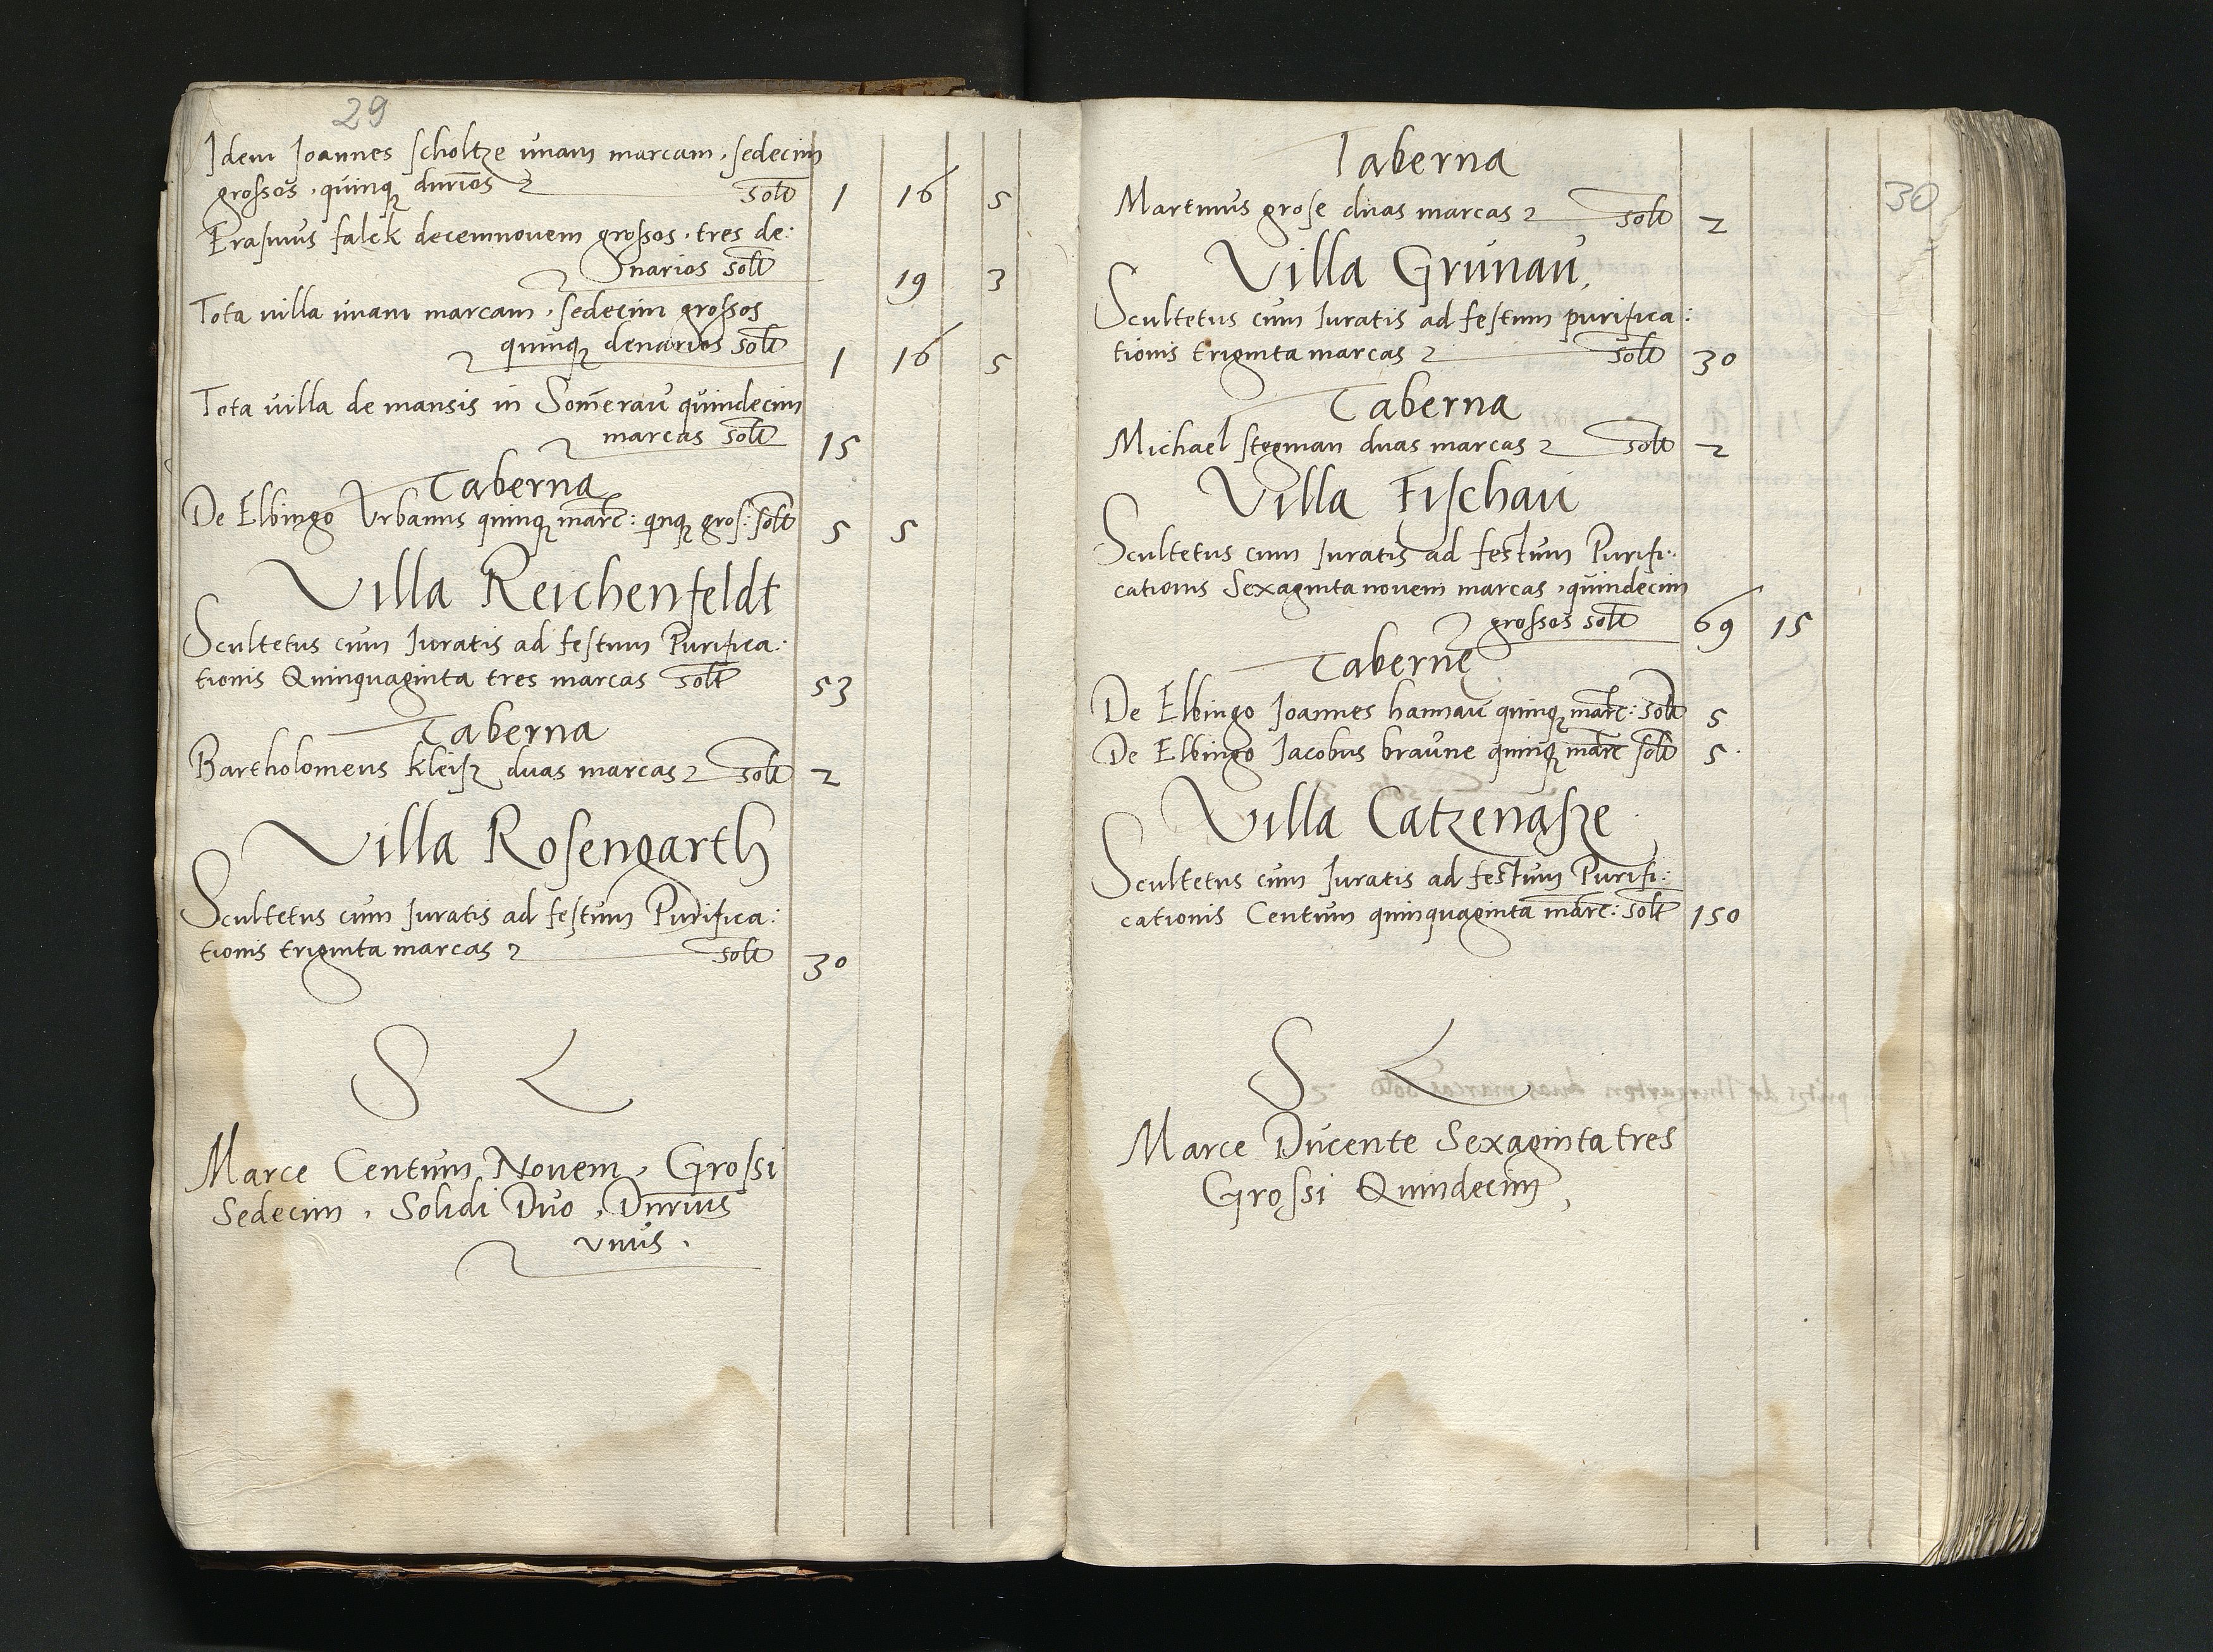 29
Idem Joannes scholtze unam marcam, sedecim
grossos, quinq₃ dnrios solt 1 16 5
Erasmus falck decemnouem grossos, tres de:
narios solt 19 3
Tota uilla unam marcam, sedecim grossos
quinq₃ denarios solt 1 16 5
Tota uilla de mansis in Som̄erau quindecim
marcas solt 15
Taberna
De Elbingo Vrbanus quinq₃ marc: qinq₃ gros: solt 5 5
Villa Reichenfeldt
Scultetus cum Iuratis ad festum Purifica:
tionis Quinquaginta tres marcas solt 53
Taberna
Bartholomeus kleisz duas marcas solt 2
Villa Rosengarth
Scultetus cum Iuratis ad festum Purifica:
tionis triginta marcas solt 30
S L
Marce Centum Nouem, Grossi
Sedecim, Solidi Duo, Dnrius
vnus.
30
Taberna
Martinus grose duas marcas solt 2
Villa Grunau,
Scultetus cum Iuratis ad festum purifica:
tionis triginta marcas solt 30
Taberna
Michael stegman duas marcas solt 2
Villa Fischau
Scultetus cum Iuratis ad festum Purifi:
cationis Sexaginta nouem marcas, quindecim
grossos solt 69 15
Tabernę
De Elbingo Joannes hannau quinq₃ marc: solt 5
De Elbingo Jacobus braune quinq₃ marc solt 5
Villa Catzenasze
Scultetus cum Iuratis ad festum Purifi:
cationis Centum quinquaginta marc: solt 150
S L
Marce Ducente Sexaginta tres
Grossi Quindecim,